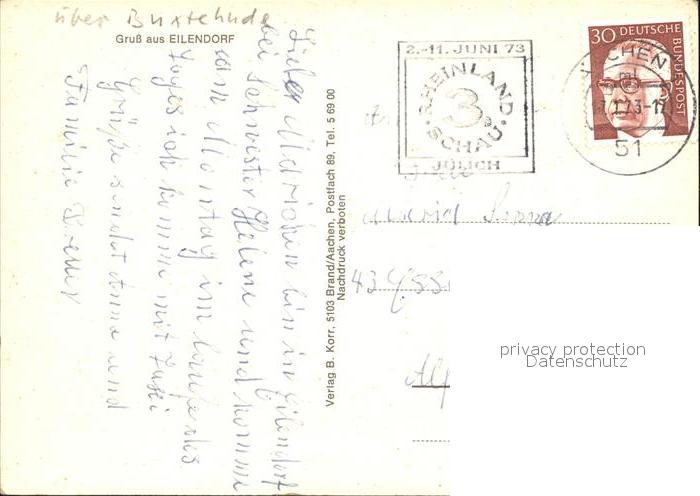 über Buxtehude
Gruß aus EILENDORF
Liebes Mariechen bin in Eilendorf
bei Schwester Helene und komme
am Montag im laufe des
Tages ich komme mit Zusei
Grüße sendet Anna und
Familie
Verlag B. Korr, 5103 Brand/Aachen, Postfach 89, Tel. 5 69 00
Nachdruck verboten
2.-11. JUNI 73
3.
RHEINLAND
SCHAU
JÜLICH
30 DEUTSCHE BUNDESPOST
AACHEN
51
Maria
43
privacy protection
Datenschutz